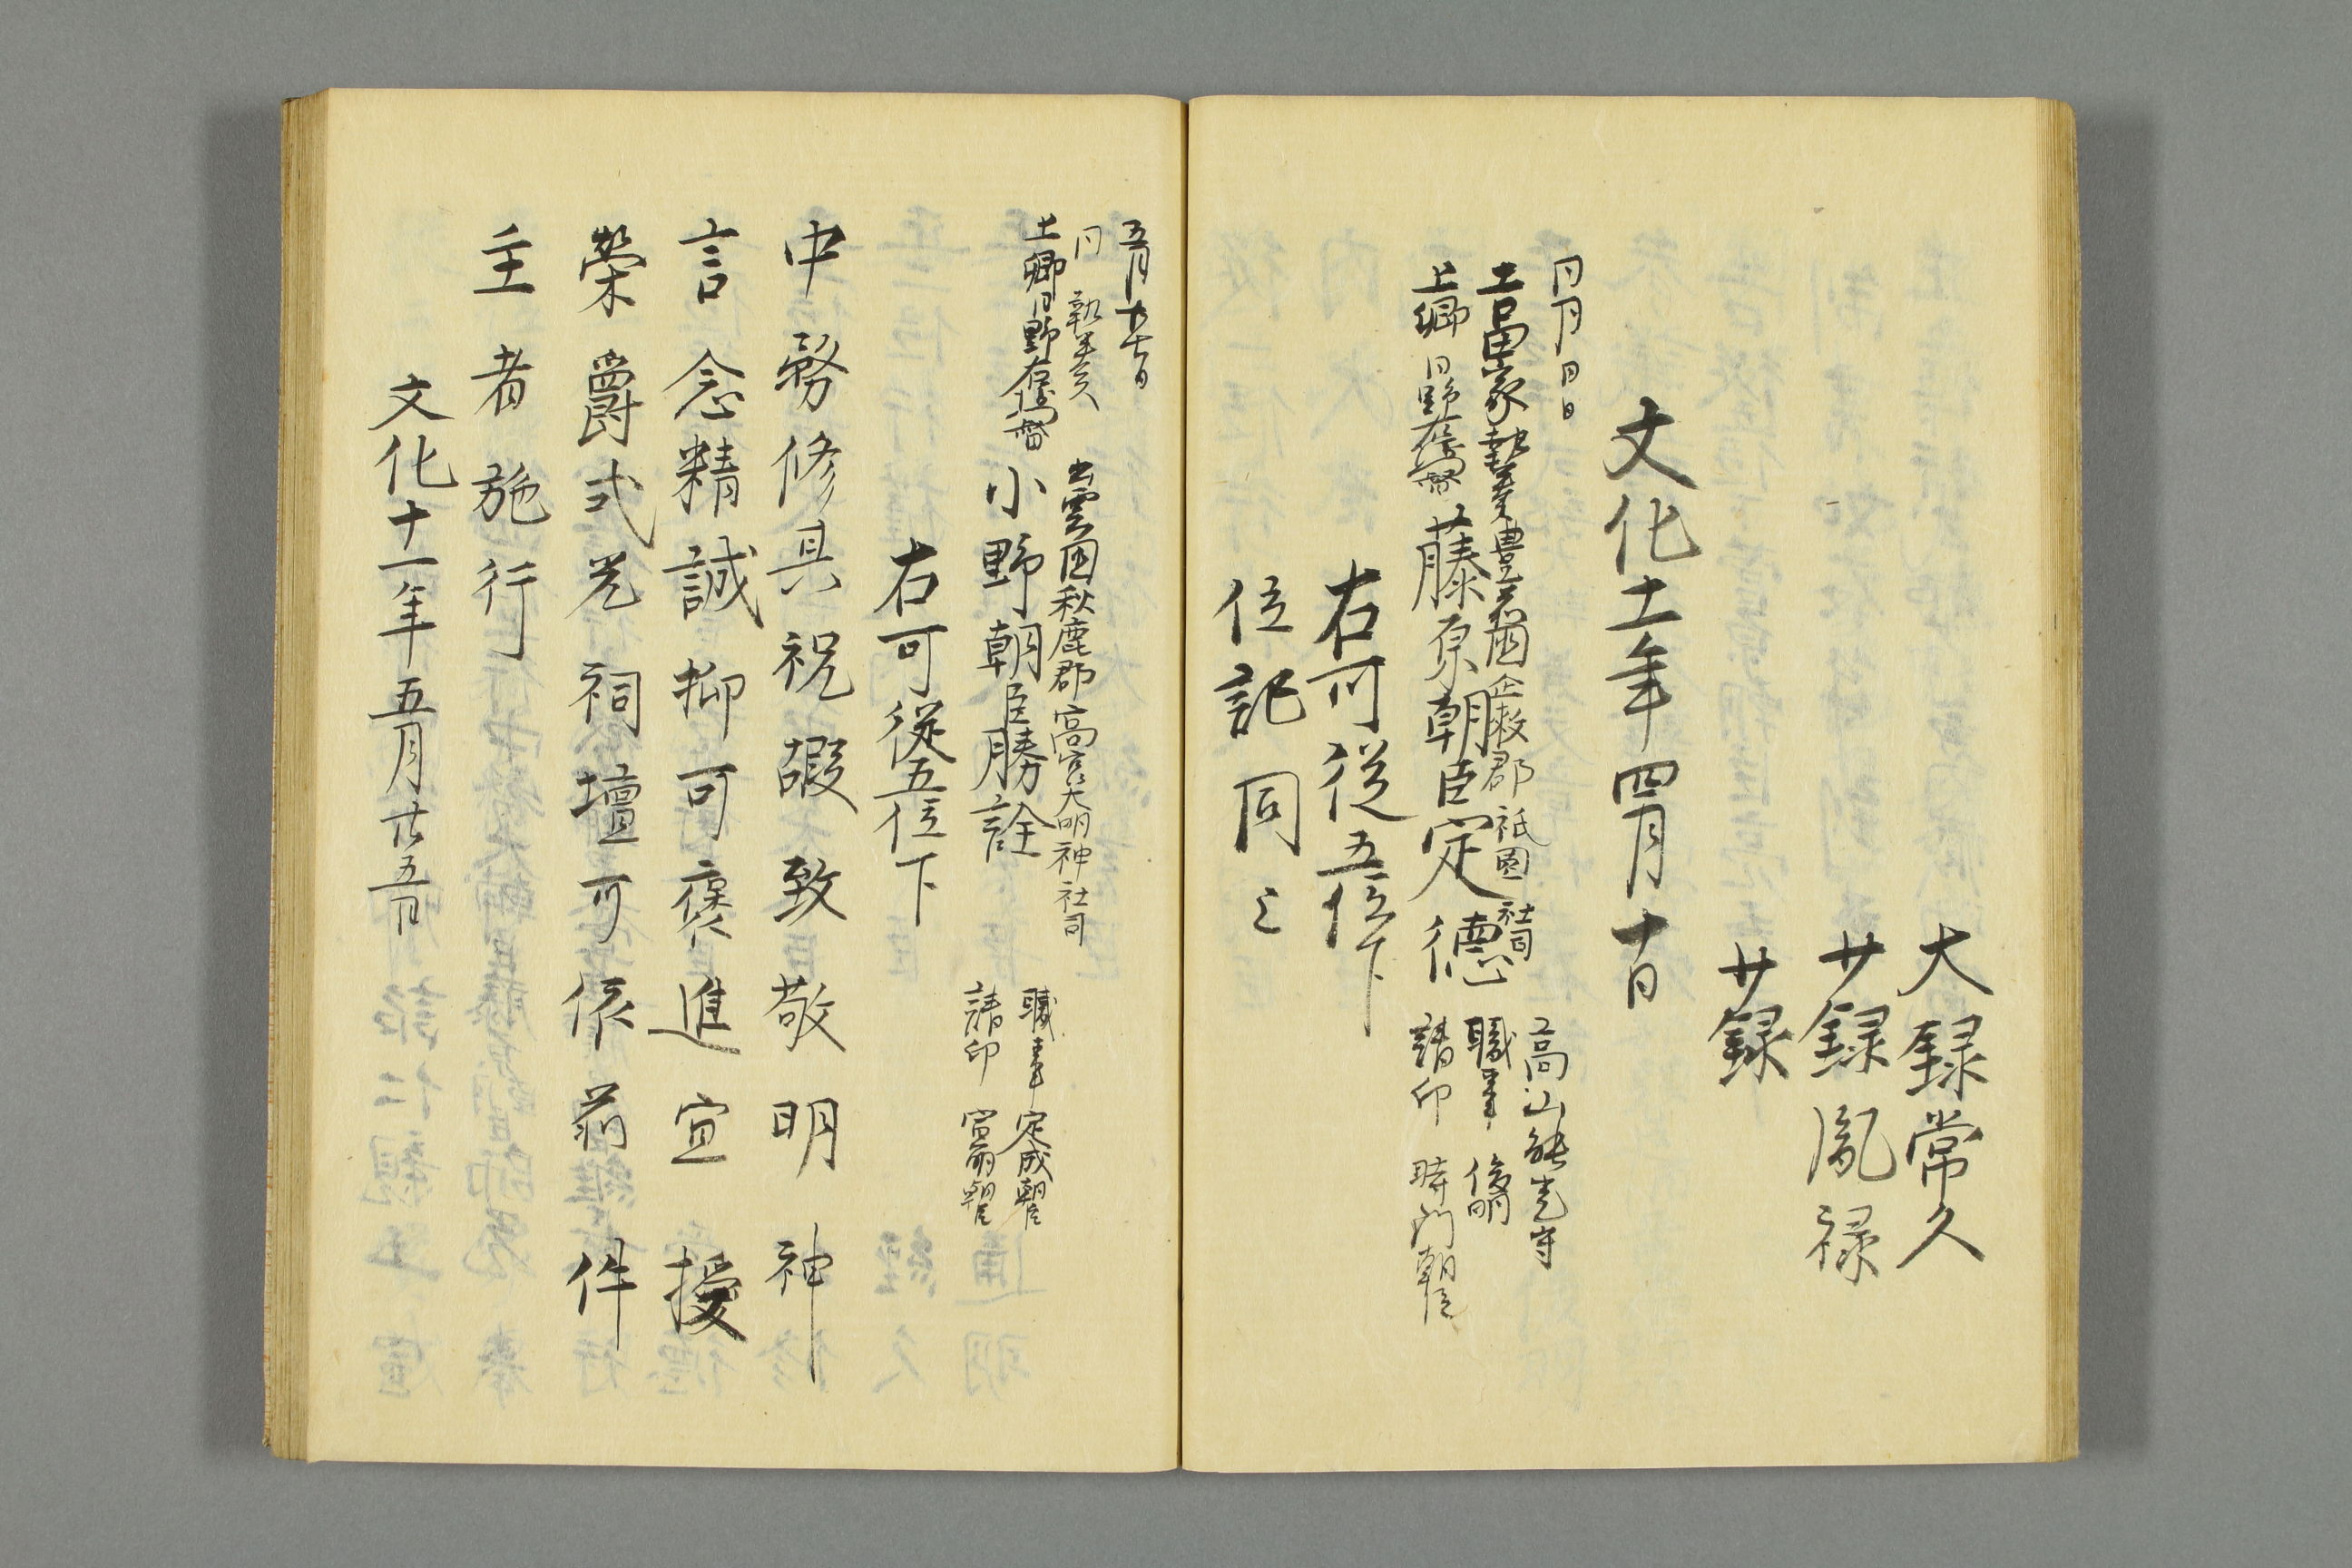 大録常久
少録胤禄
少録
文化十一年四月十日
同月同日
吉田家執奏豊前国企救郡祇園社司 高山能登守
上卿日野右衛門督 藤原朝臣定徳 職事 俊明
請印 時門朝臣
右可従五位下
位記同之
五月廿五日
同執奏 出雲国秋鹿郡高宮大明神社司
上卿日野右衛門督 小野朝臣勝詮 職事定成朝臣
請印
右可従五位下
中務修其祝嘏致敬明神
言念精誠抑可褒進宜授
榮爵式光祠壇可依前件
主者施行
文化十一年五月廿五日